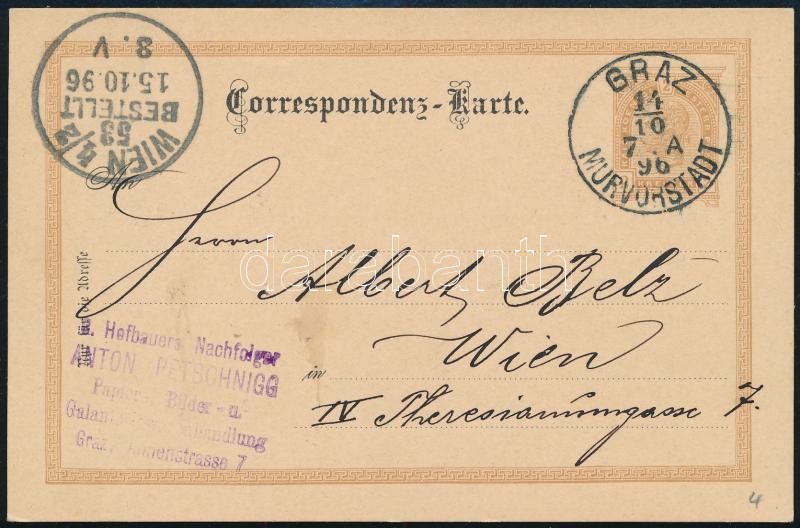 WIEN 4/2
53
BESTELLT
15.10.96
8. V
Correspondenz-Karte.
GRAZ
14
10
7 . A
96
MURVORSTADT
An
Herrn
Albert Belz
Wien
in
IV Theresianumgasse 7.
Nur für die Adresse
Hofbauers Nachfolger
ANTON PETSCHNIGG
Papier, Bilder- u.
handlung
Graz, Annenstrasse 7
darabanth
4